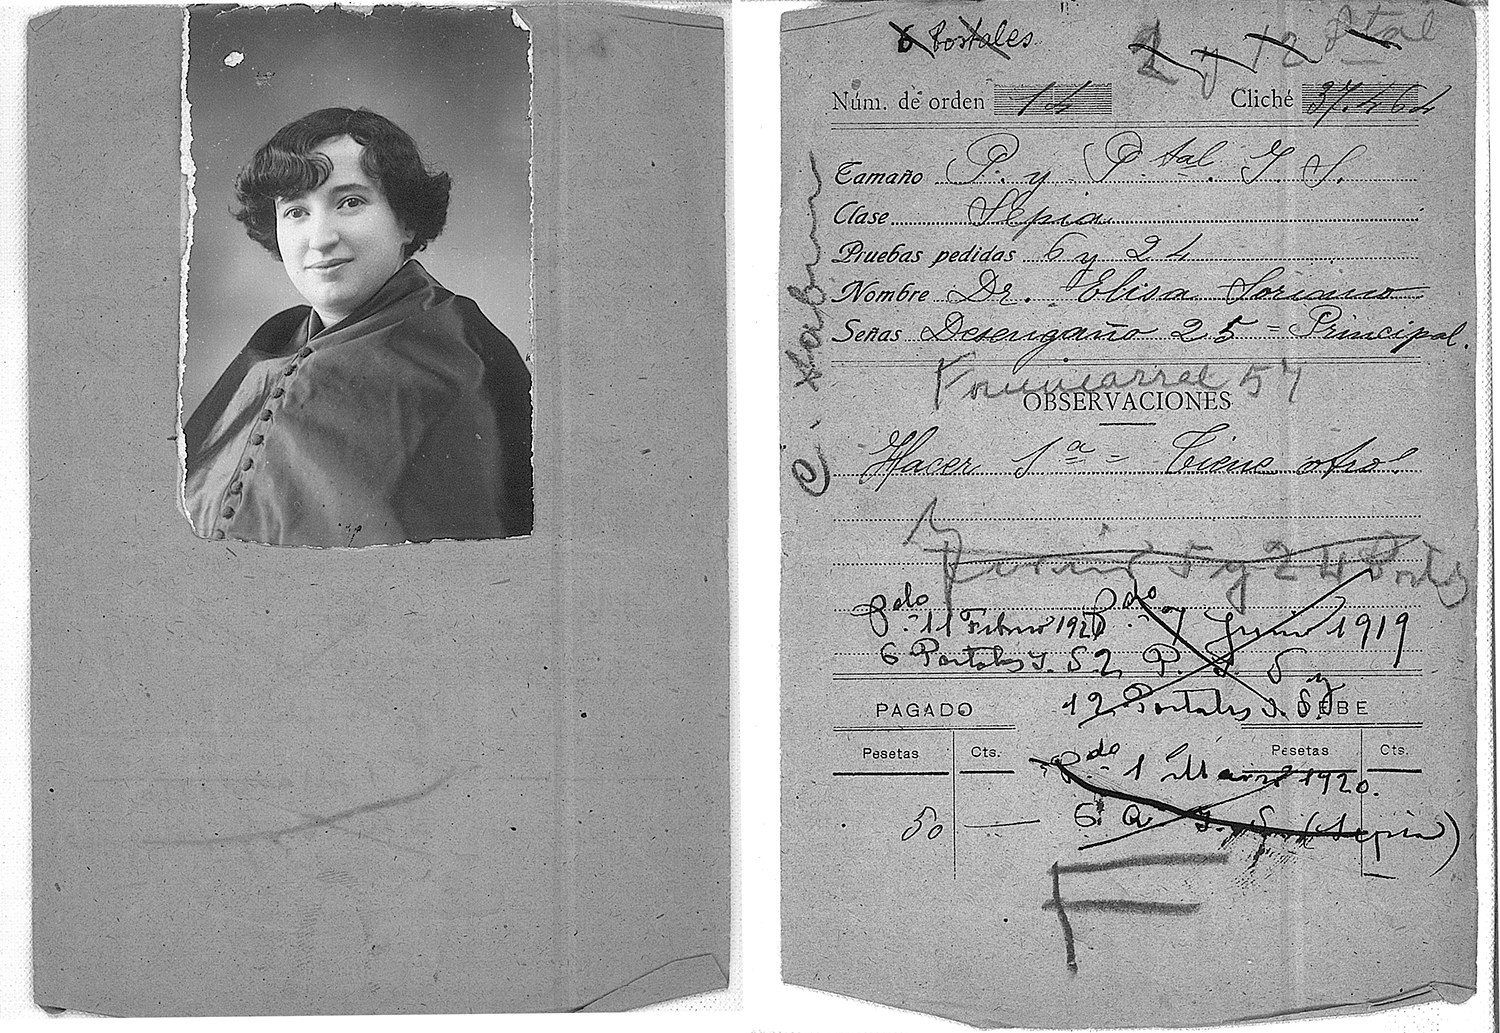 6 Postales
2 y 12 Ptal
Núm. de orden 14 Cliché 37.464
Tamaño P. y Ptal. Y S.
Clase Sepia
Pruebas pedidas 6 y 24
Nombre Dr. Elisa Soriano
Señas Desengaño 25 = Principal.
Fuencarral 57
OBSERVACIONES
Hacer 1ª = Tiene otro
5 y 24
Pdo. 11 Febrero 1920 Pdo. 7 Junio 1919
6 Postales Y. S. 2 P. Y. S y
12 Postales Y. S.
PAGADO DEBE
Pesetas Cts. Pesetas Cts.
Pdo. 1 Marzo 1920.
50 6 A Y. S. (Sepia)
F